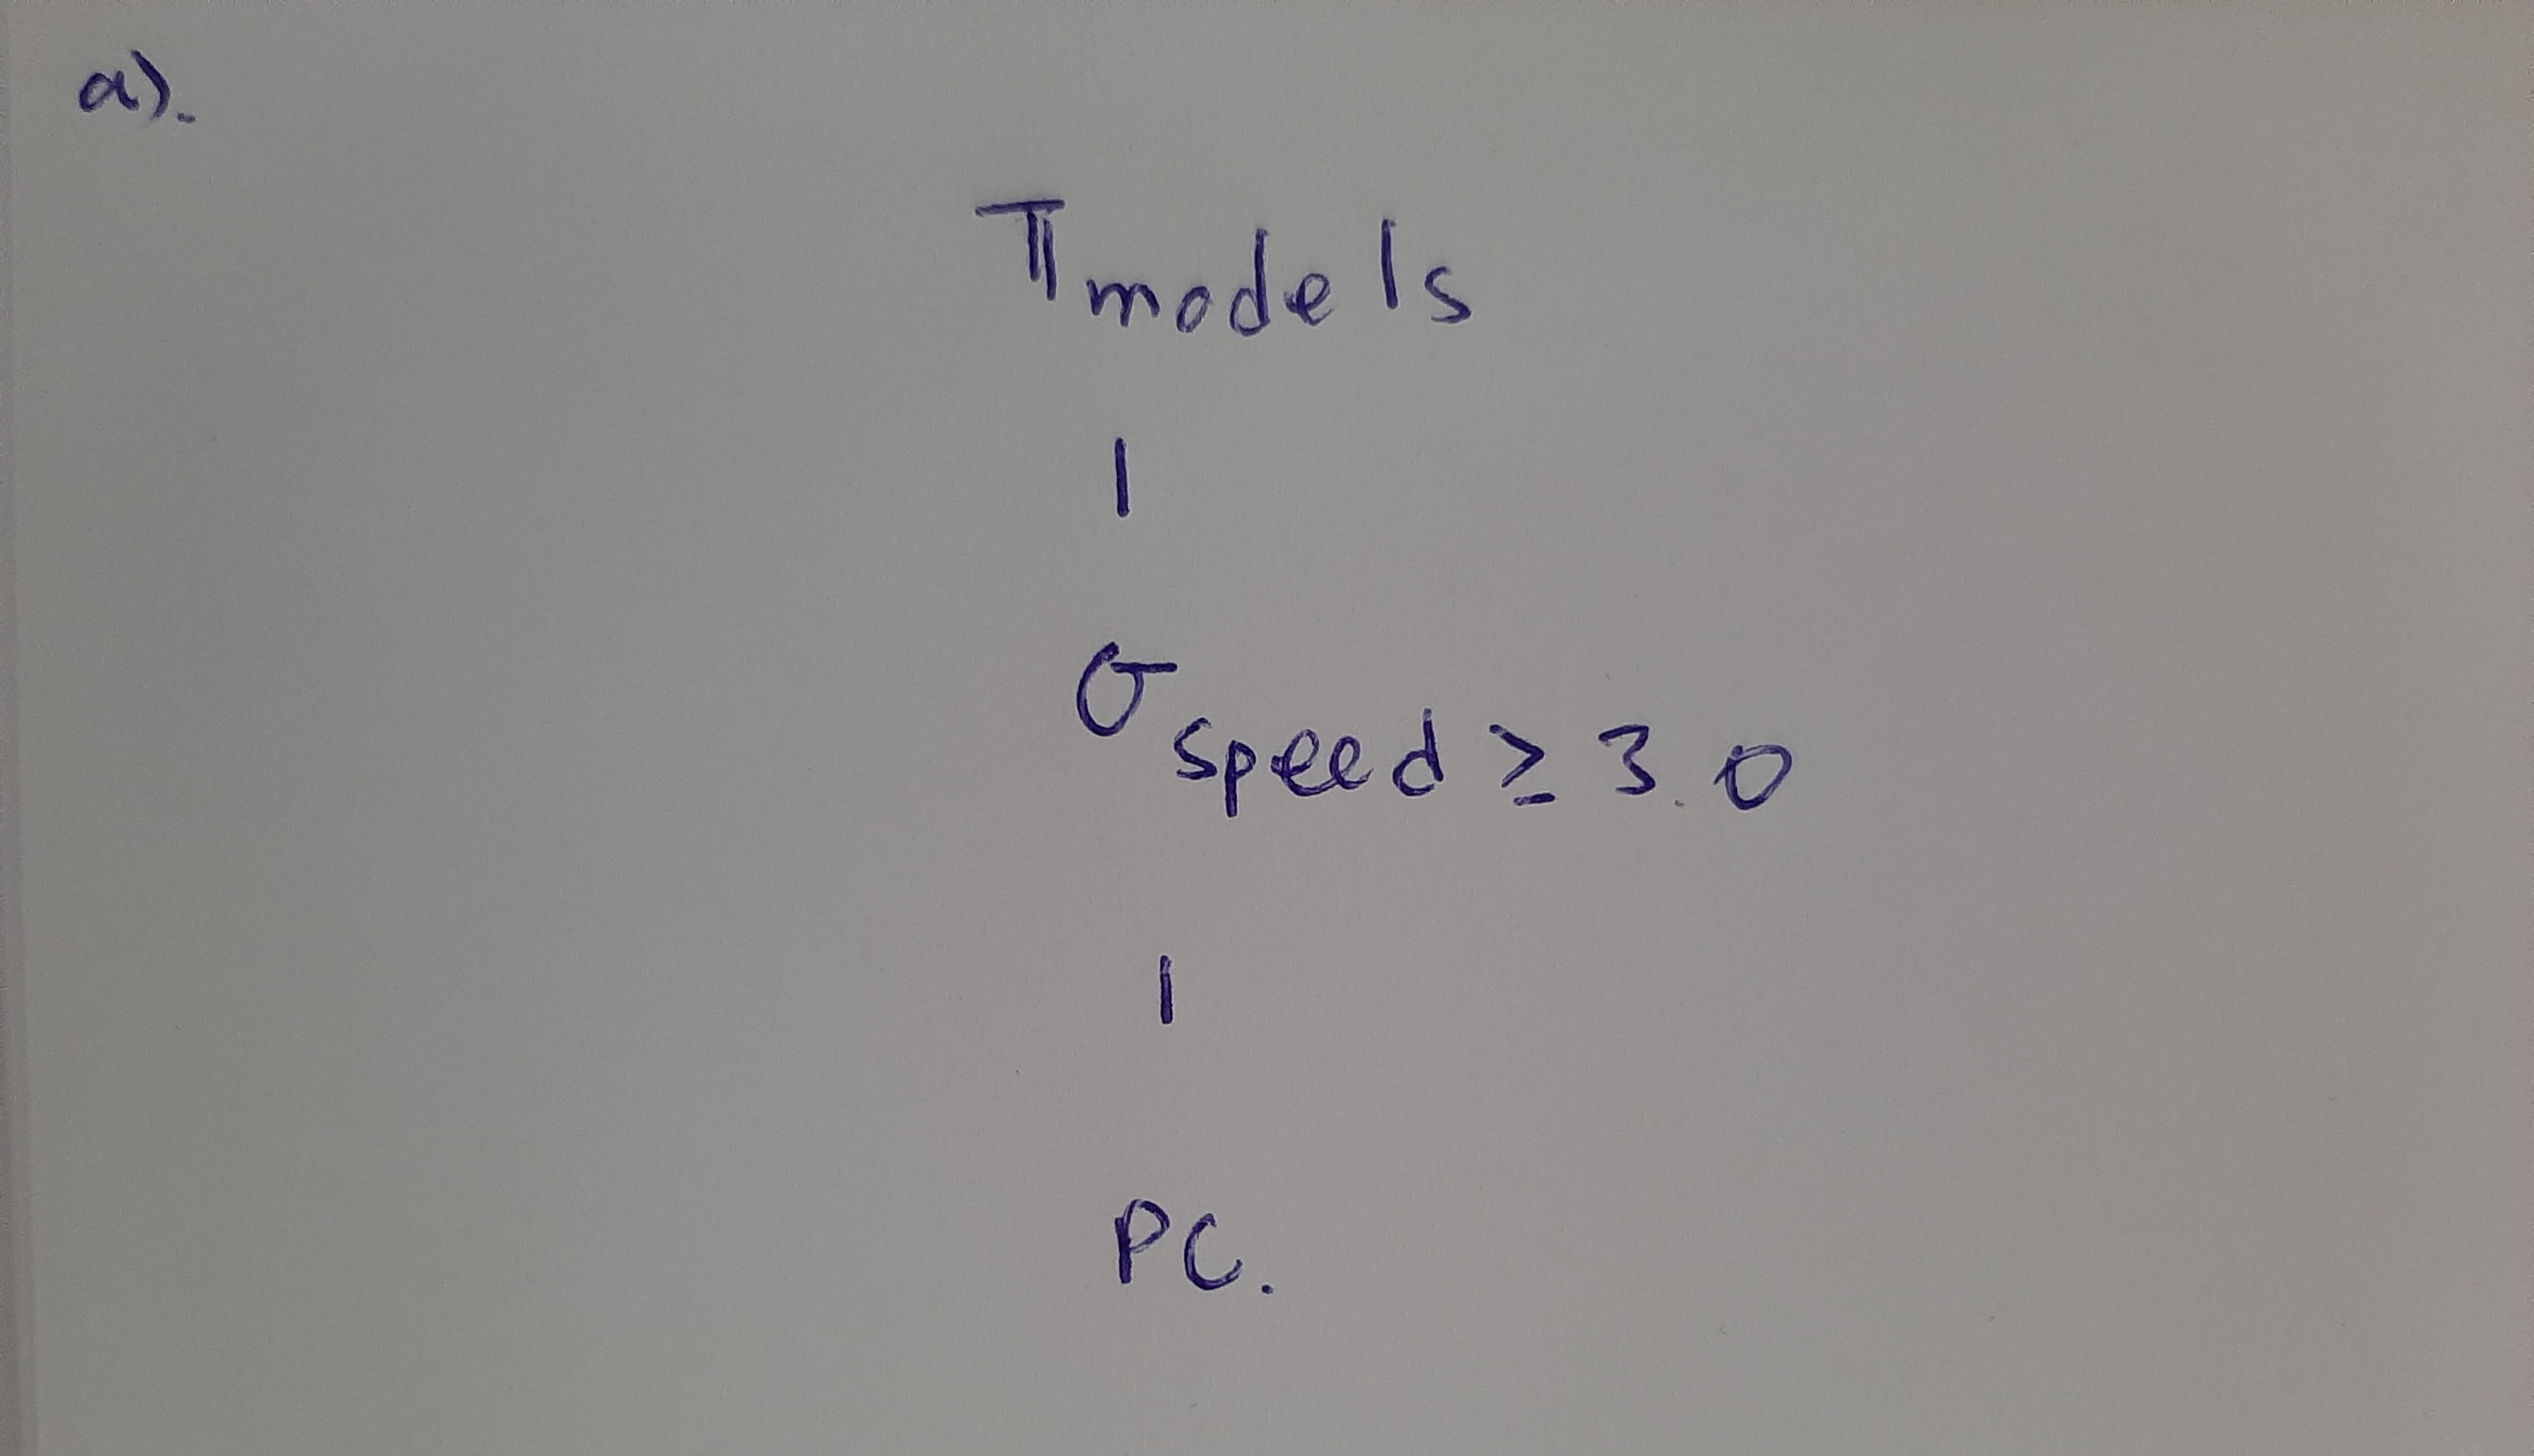 a).
π models
|
σ speed ≥ 3.0
|
PC.